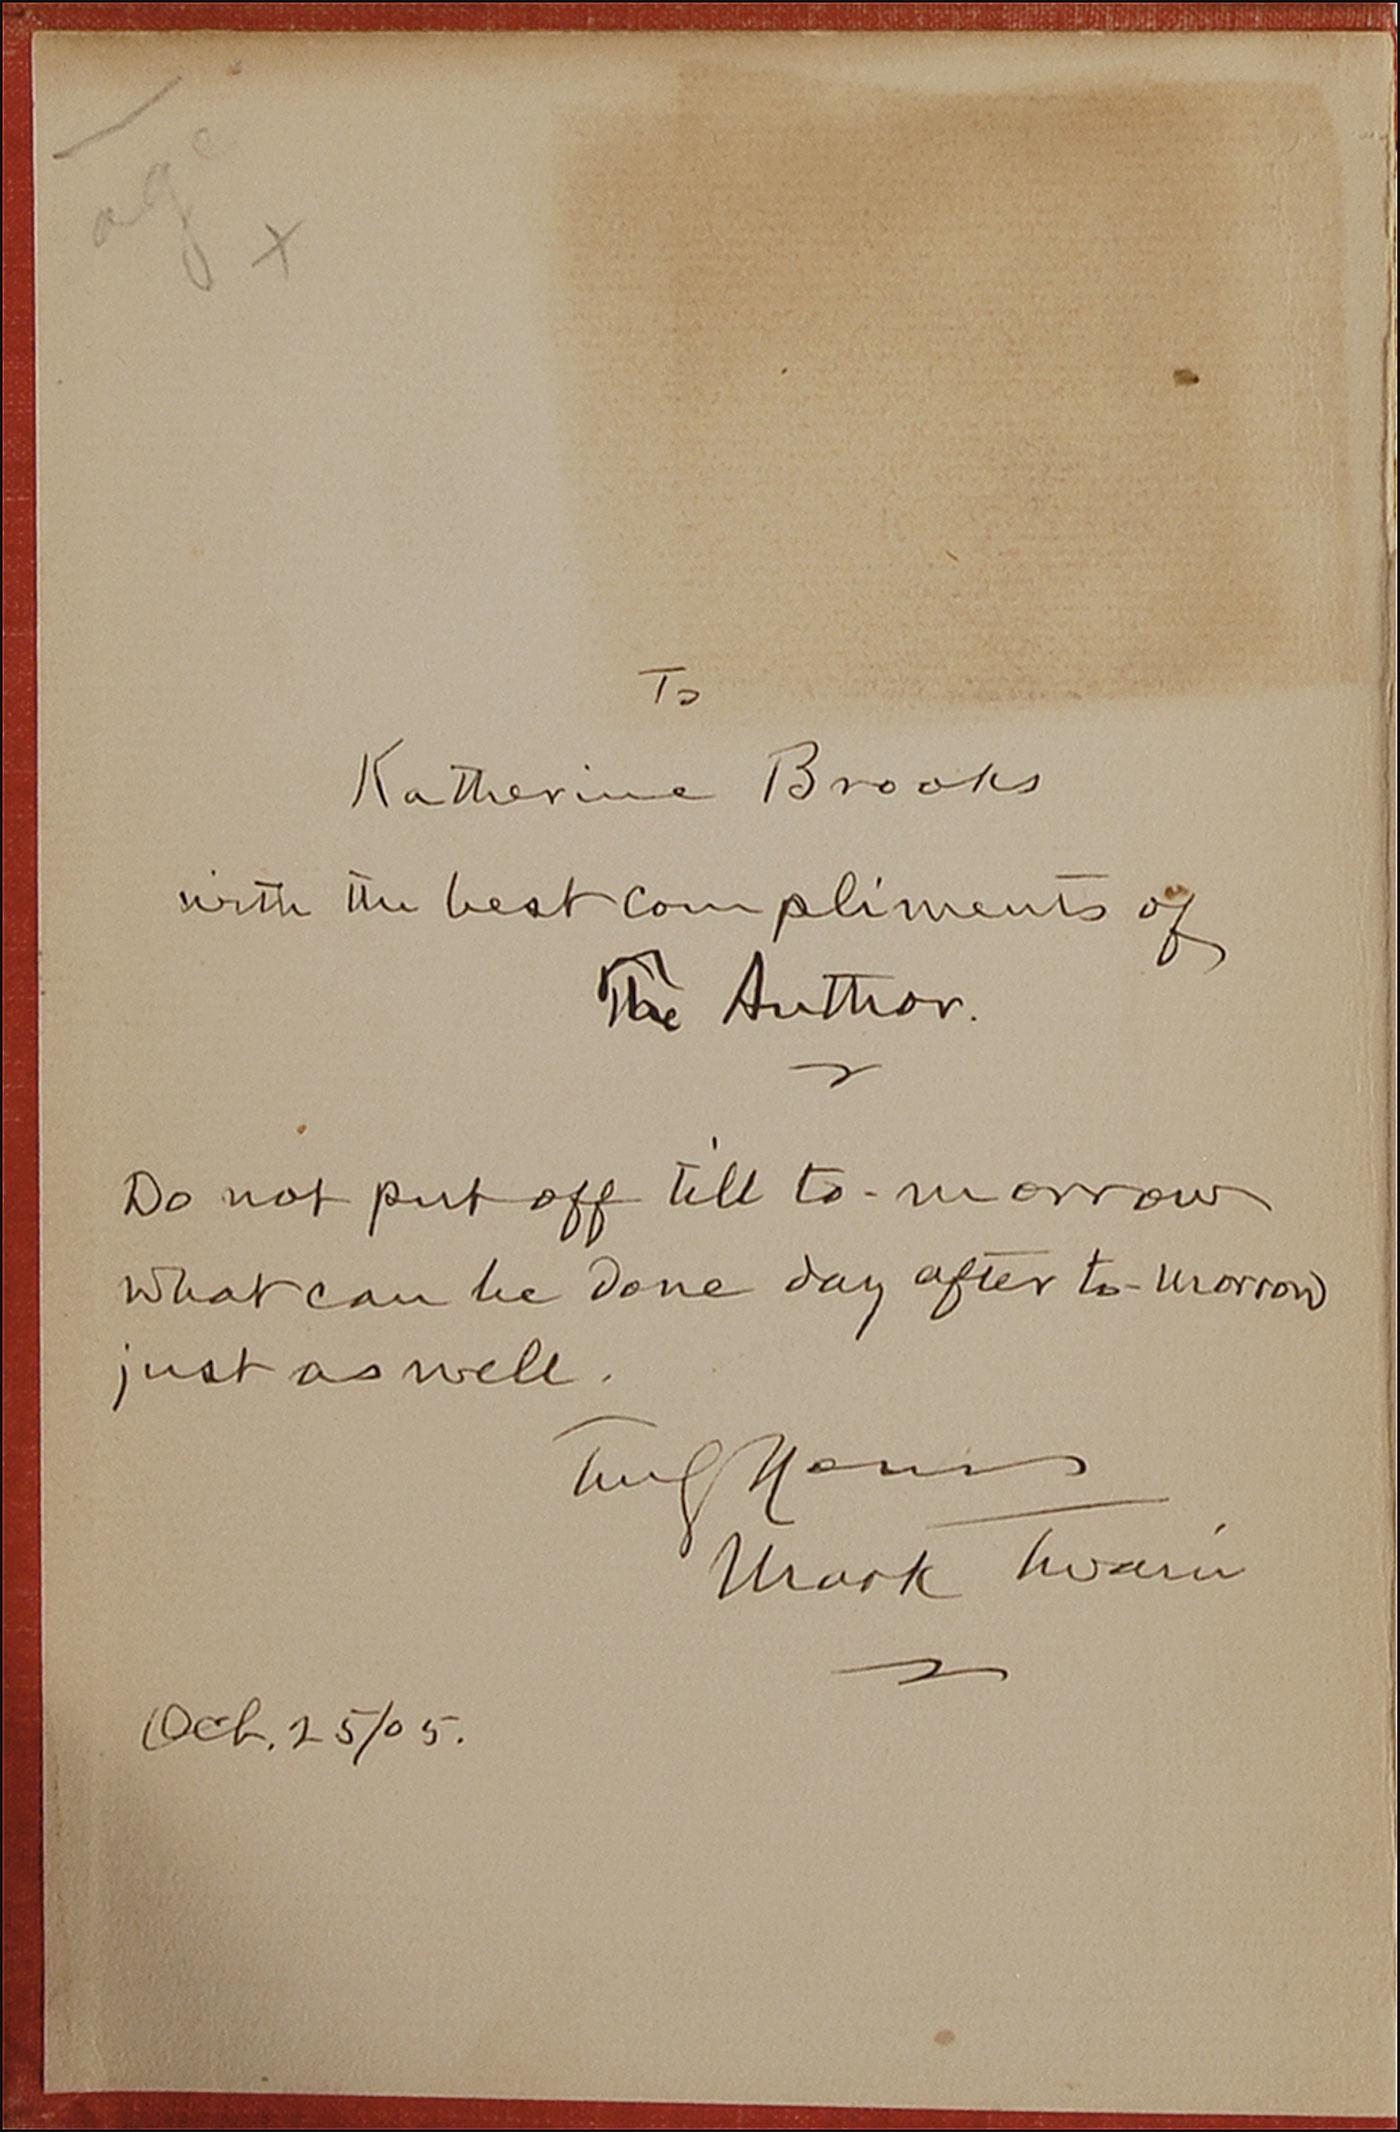 To
Katherine Brooks
with the best compliments of
The Author.
Do not put off till to-morrow
what can be done day after to-morrow
just as well.
Truly Yours
Mark Twain
Oct. 25/05.